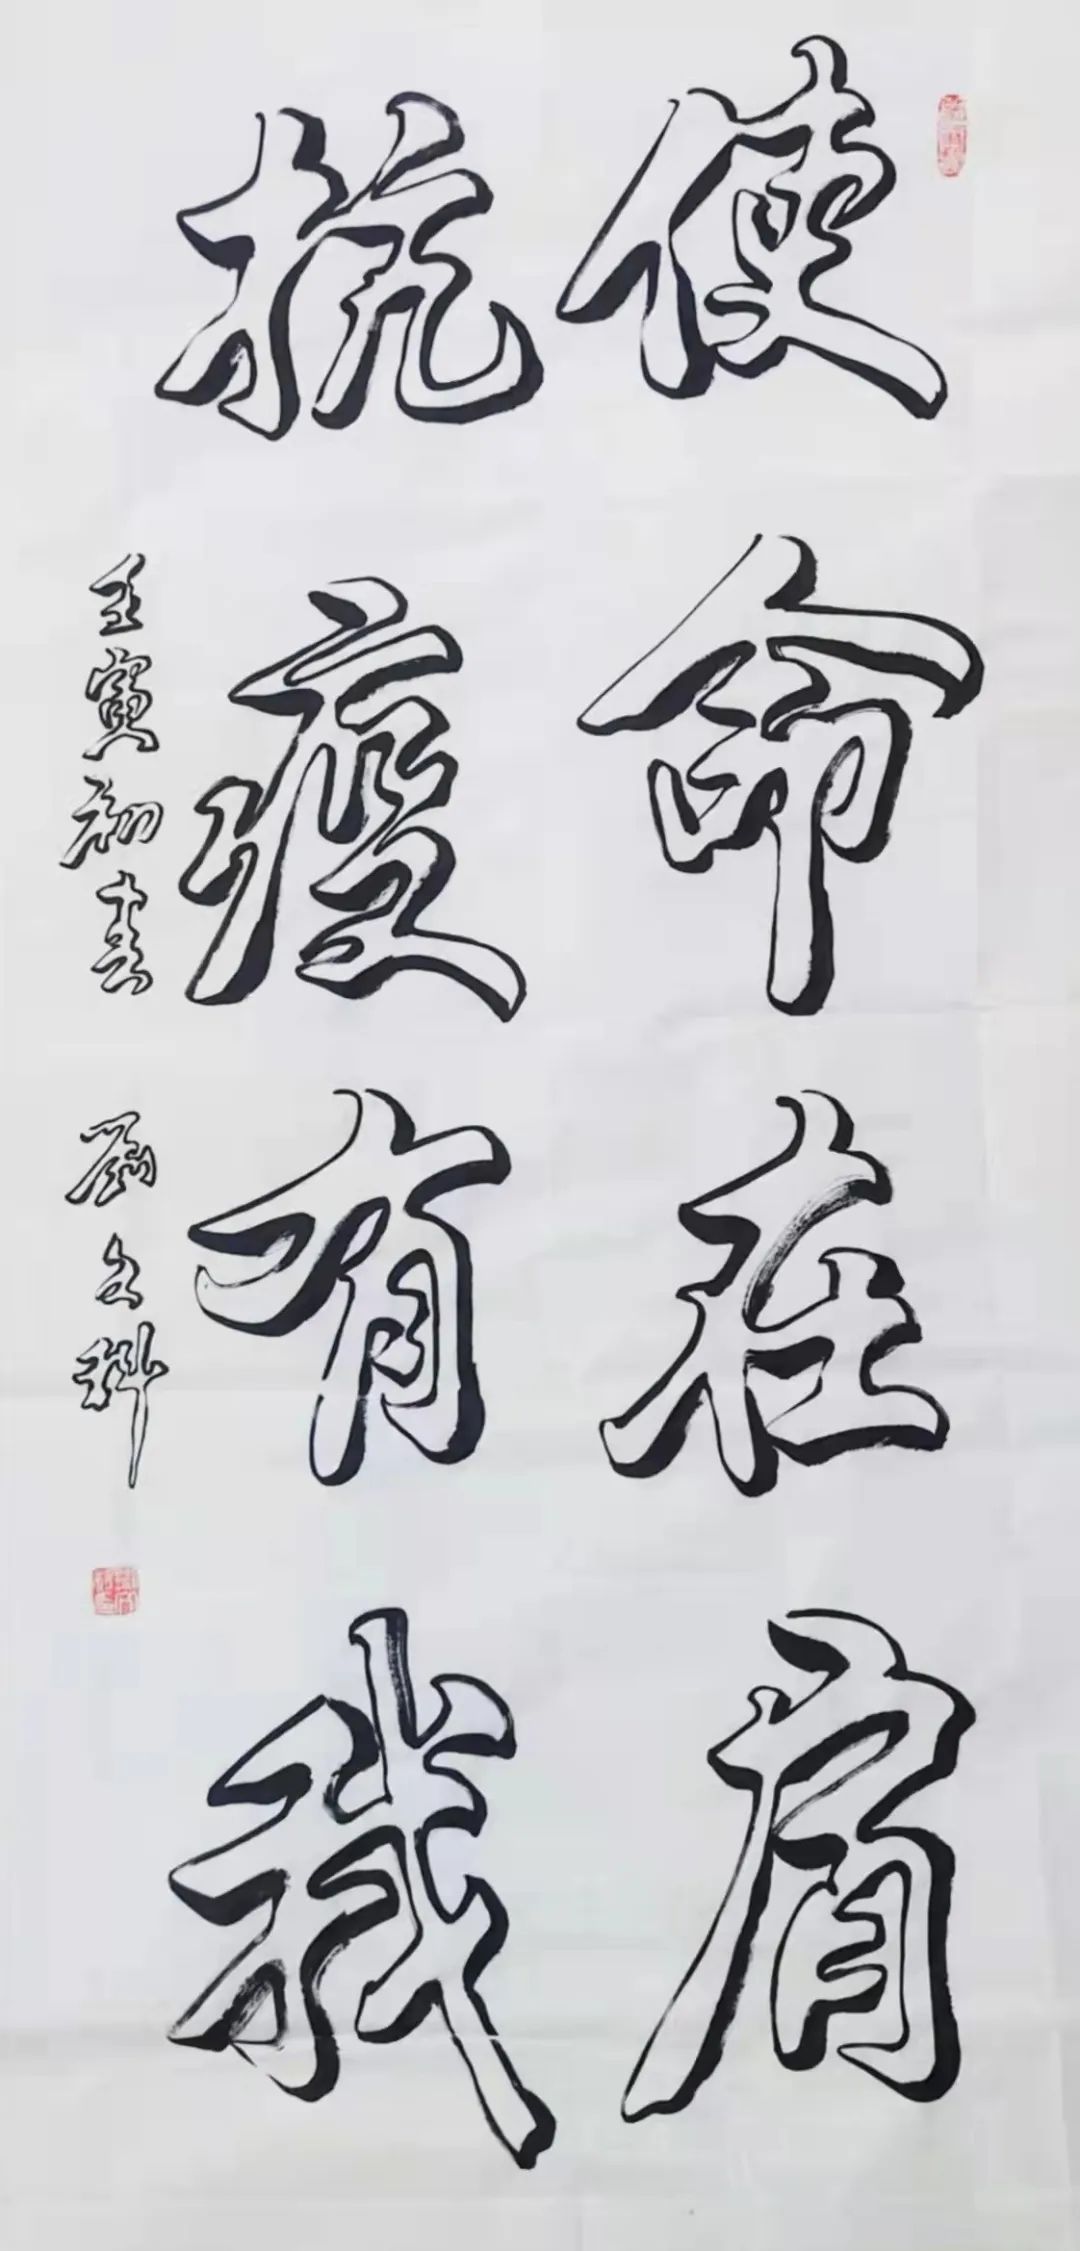 使命在肩
抗疫有我
壬寅初春
刘文科